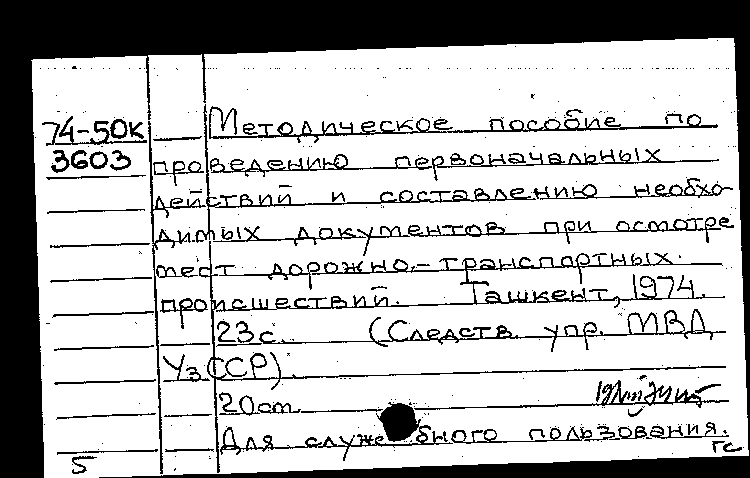 74-50К Методическое пособие по
3603 проведению первоначальных
действий и составлению необхо-
димых документов при осмотре
мест дорожно-транспортных
происшествий. Ташкент, 1974.
23с. (Следств. упр. МВД
УзССР).
20от.
Для служебного пользования.
гс
5